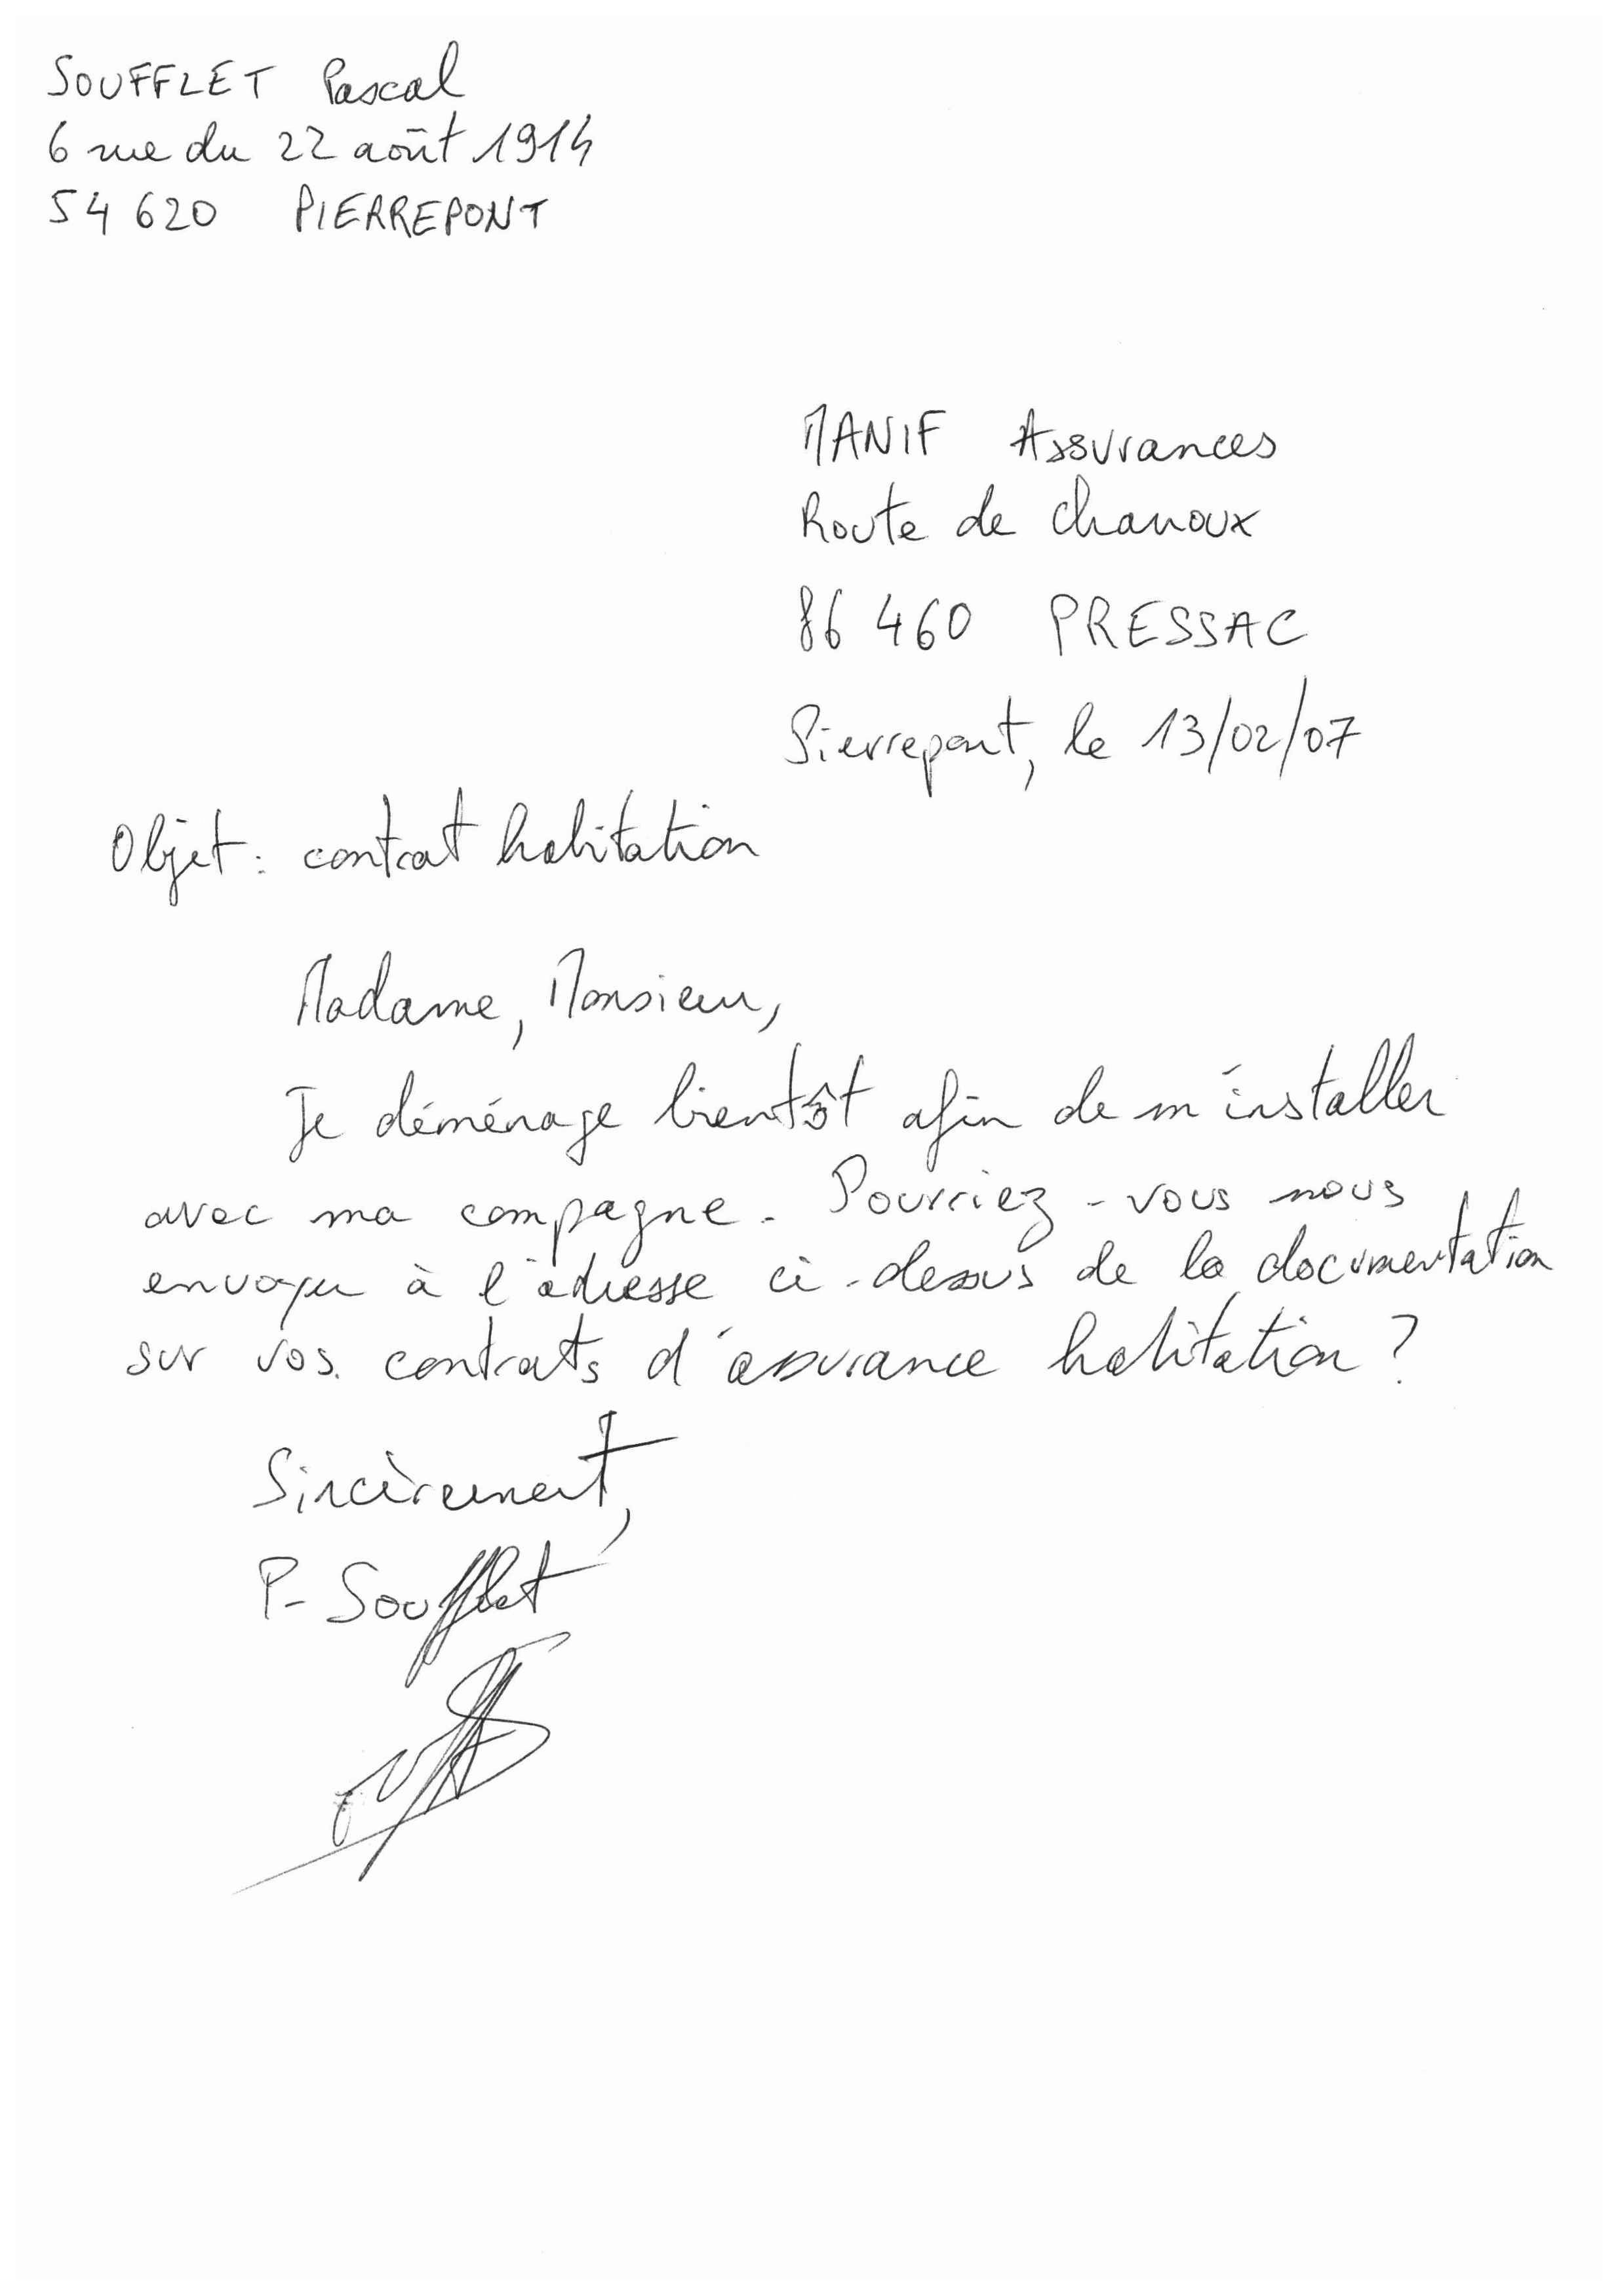 SOUFFLET Pascal
6 rue du 22 août 1914
54 620 PIERREPONT
MANIF Assurances
Route de Chanoux
86 460 PRESSAC
Pierrepont, le 13/02/07
Objet : contrat habitation
Madame, Monsieur,
Je déménage bientôt afin de m'installer
avec ma compagne. Pourriez-vous nous
envoyer à l'adresse ci-dessus de la documentation
sur vos contrats d'assurance habitation ?
Sincèrement,
P. Soufflet